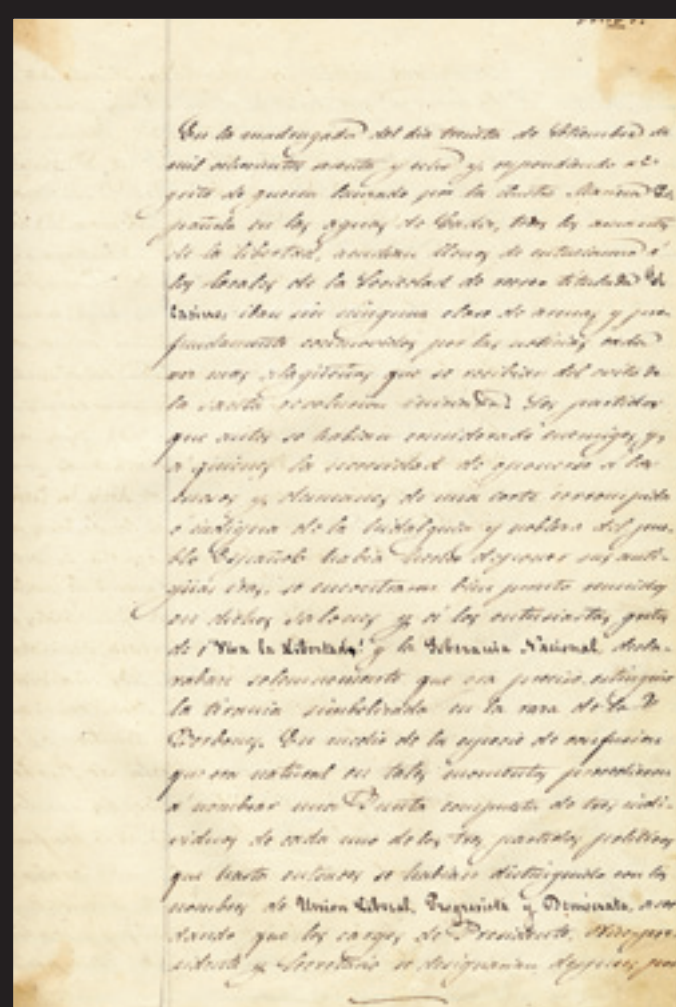 En la madrugada del dia treinta de Setiembre de
mil ochocientos sesenta y ocho y respondiendo al
grito de guerra lanzado por la Marina Es-
pañola en las aguas de Cadiz, todos los amantes
de la libertad, acudian llenos de entusiasmo á
los locales de la Sociedad de recreo titulada El
Casino; iban sin ninguna clase de armas y pro-
fundamente conmovidos por las noticias cada
vez mas alagüeñas que se recibian del exito de
la santa revolucion iniciada. Los partidos
que antes se habian considerado enemigos, y
á quienes la necesidad de oponerse á los
y demanes de una corte corrompida
é indigna de la hidalguia y nobleza del pue-
blo Español habia hecho deponer sus anti-
guas iras, se encontraron bien pronto reunidos
en dichos salones y á los entusiastas gritos
de ¡Viva la Libertad! y la Soberania Nacional, decla-
raban solemnemente que era preciso extinguir
la tirania simbolizada en la raza de los
Borbones. En medio de la especie de confusion
que era natural en tales momentos procedieron
á nombrar una Junta compuesta de tres indi-
viduos de cada uno de los tres partidos politicos
que hasta entonces se habian distinguido con los
nombres de Union Liberal, Progresista y Demócrata, acor-
dando que los cargos de Presidente, Vicepre-
sidente y Secretario se designarian despues por